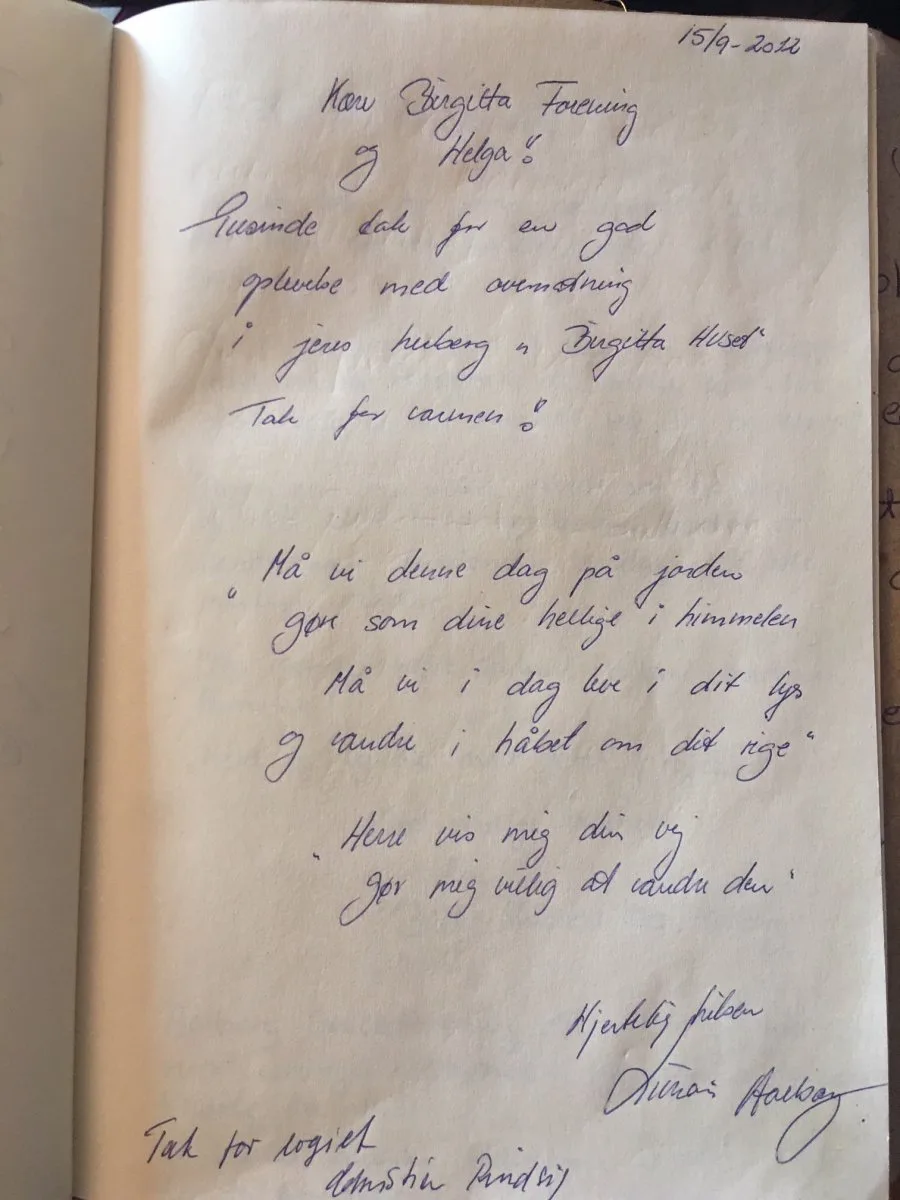 15/9-2022
Kære Birgitta Forening
og Helga!
Tusinde tak for en god
oplevelse med overnatning
i jeres herberg „ Birgitta Huset"
Tak for varmen!
„ Må vi denne dag på jorden
gøre som dine hellige i himmelen
Må vi i dag leve i dit lys
og vandre i håbet om dit rige"
„ Herre vis mig din vej
gør mig villig at vandre den"
Hjertelig hilsen
Tak for logiet